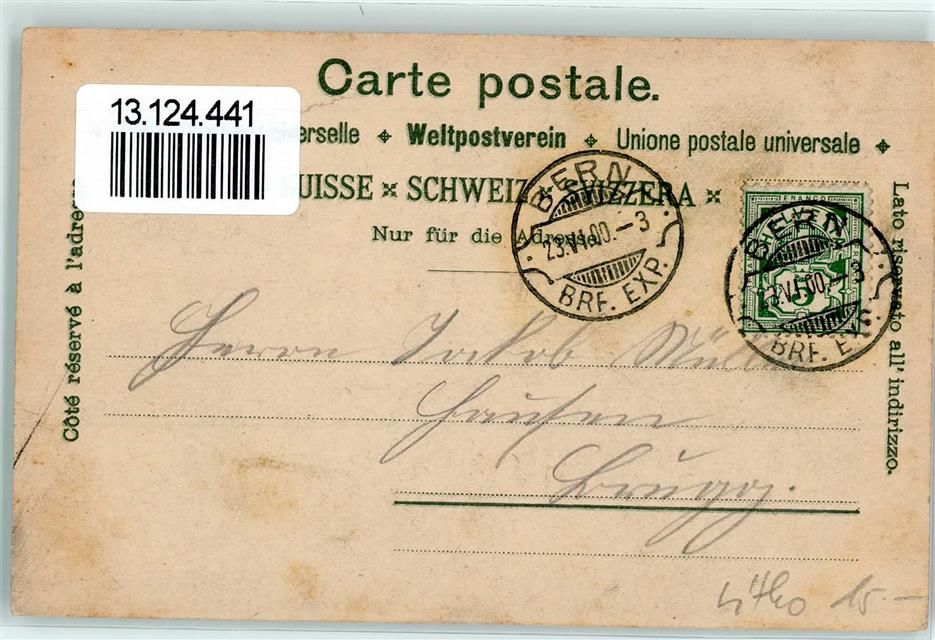 Carte postale.
13.124.441
erselle Weltpostverein Unione postale universale
UISSE × SCHWEIZ × SVIZZERA ×
Nur für die Adresse
Côté réservé à l'adre
Lato riservato all' indirizzo.
BERN
23.VI.00.-3
BRF. EXP.
FRANCO
HELVETIA
5
BERN
23.VI.00.-3
BRF. EXP.
Herrn Jakob Müller
Hausen
Brugg.
Litho 15.-